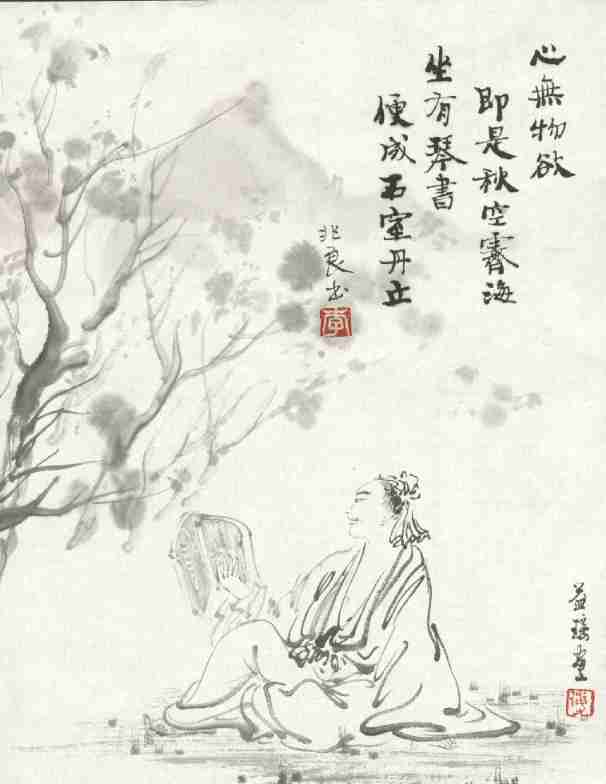 心無物欲
即是秋空霽海
坐有琴書
便成石室丹丘
兆良书
李